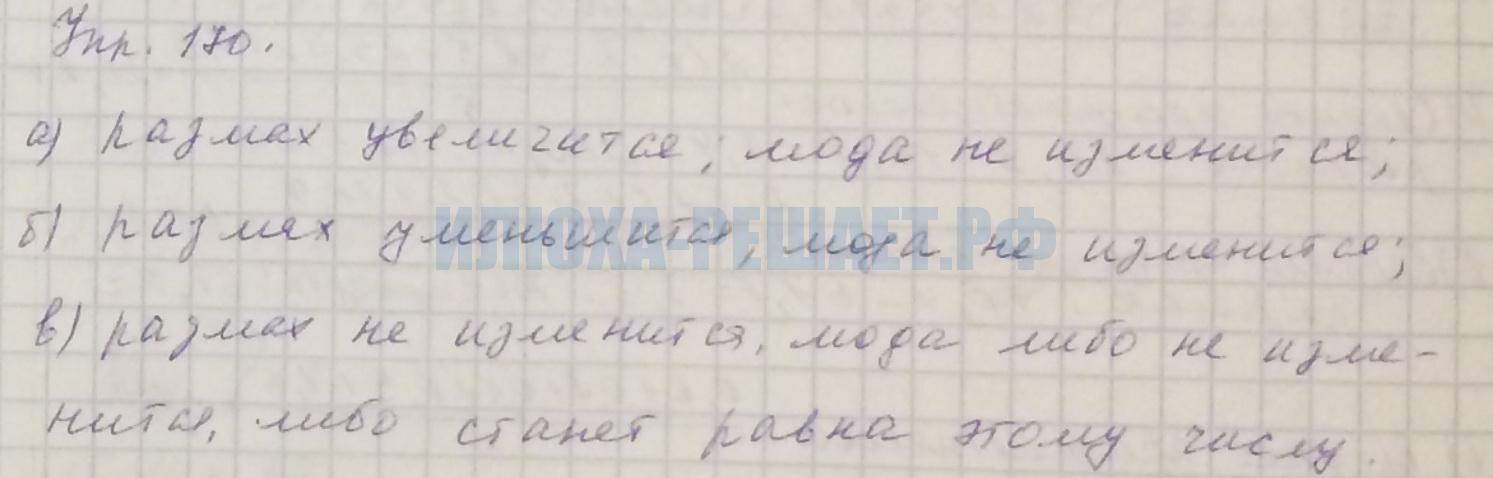 Упр. 170.
а) размах увеличится; мода не изменится;
б) размах уменьшится, мода не изменится;
ИЛЮХА-РЕШАЕТ.РФ
в) размах не изменится, мода либо не изме-
нится, либо станет равна этому числу.